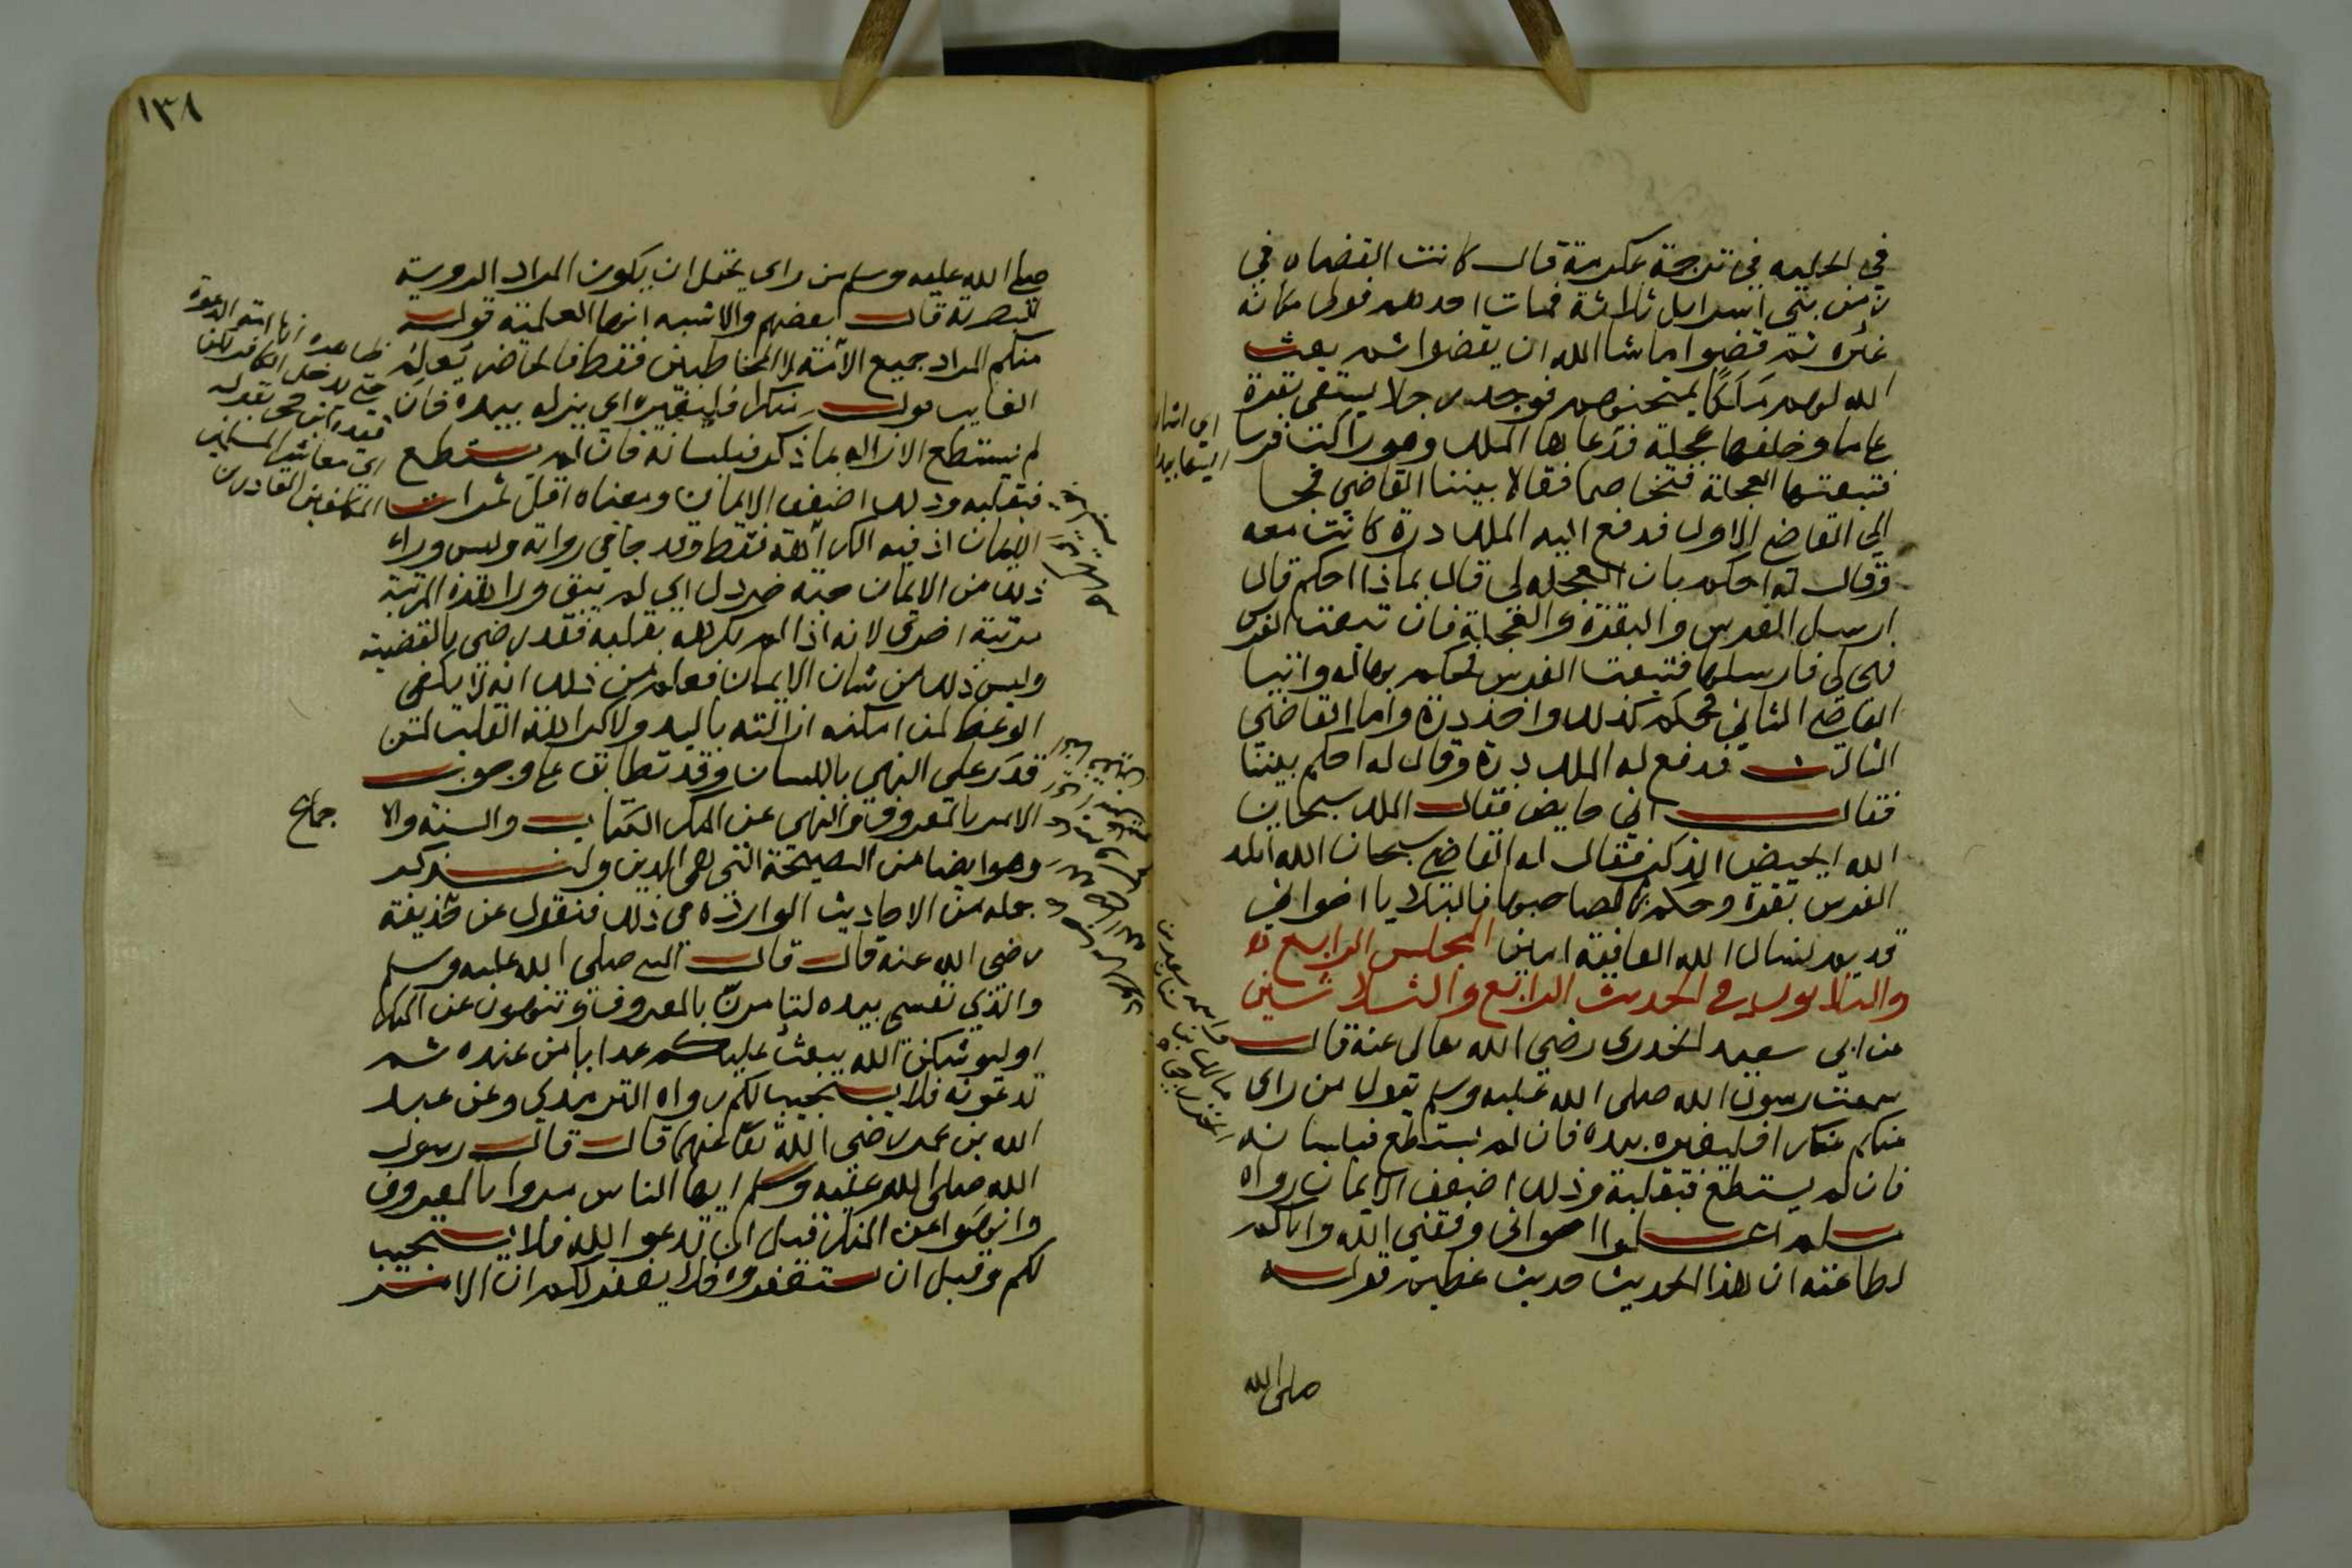 في الحليه في ترجمة عكرمة قال كانت القضاه في
زمن بني اسرايل ثلاثة فمات احدهم فولى مكانه
غيره ثم قضوا ماشا الله ان يقضوا ثم بعث
الله لهم مَلَكًا يمتحنهم فوجد رجلا يسقي بقرة
على ما وخلفها عجلة فدعاها الملك وهو راكب فرسا
فتبعتها العجلة فتخاصما فقالا بيننا القاضي فجا
الى القاضي الاول فدفع اليه الملك درة كانت معه
وقال له احكم بان العجلة لي قال بماذا احكم قال
ارسل الفرس والبقرة والعجلة فان تبعت الفرس
فهي لي فارسلها فتبعت الفرس فحكم بها له واتيا
القاضي الثاني فحكم كذلك واخذ درة واما القاضي
الثالث فدفع له الملك درة وقال له احكم بيننا
فقال اني حايض فقال الملك سبحان
الله ايحيض الذكر فقال له القاضي سبحان الله اتلد
الفرس بقرة وحكم بها لصاحبها فالبلا يا اخواني
قديم نسال الله العافية امين المجلس الرابع
والثلاثون في الحديث الرابع والثلاثين
عن ابي سعيد الخدري رضي الله تعالى عنه قال
سمعت رسول الله صلى الله عليه وسلم يقول من راى
منكم منكرا فليغيره بيده فان لم يستطع فبلسانه
فان لم يستطع فبقلبه وذلك اضعف الايمان رواه
مسلم اعلموا اخواني وفقني الله واياكم
لطاعته ان هذا الحديث حديث عظيم قوله
صلى الله
١٣٨
صلى الله عليه وسلم من راى يحتمل ان يكون المراد الروية
البصرية قال بعضهم والاشبه انها العلمية قوله
منكم المراد جميع الامة لا المخاطبين فقط فالحاضر
الغايب قوله منكرا فليغيره اي يزله بيده فان
لم يستطع الازاله بما ذكر فبلسانه فان لم يستطع
فبقلبه وذلك اضعف الايمان ومعناه اقل ثمرات
الايمان اذ فيه الكراهة فقط وقد جا في رواية وليس وراء
ذلك من الايمان حبة خردل اي لم يبق ورا هذه المرتبة
مرتبة اخرى لانه اذا لم يكره بقلبه فقد رضي بالقضية
وليس ذلك من شان الايمان فعلم من ذلك انه لا يكفي
الوعظ لمن امكنه ازالته باليد ولا كراهة القلب لمن
قدر على النهي باللسان وقد تطابق على وجوب
الامر بالمعروف والنهي عن المنكر الكتاب والسنة والا
جماع
وهو ايضا من النصيحة التي هي الدين ولنذكر
جملة من الاحاديث الوارده في ذلك فنقول عن حذيفة
رضي الله عنه قال قال النبي صلى الله عليه وسلم
والذي نفسي بيده لتامرن بالمعروف وتنهون عن المنكر
او ليوشكن الله يبعث عليكم عذابا من عنده ثم
تدعونه فلا يستجيب لكم رواه الترمذي وعن عبد
الله بن عمر رضي الله عنهما قال قال رسول
الله صلى الله عليه وسلم ايها الناس مروا بالمعروف
وانهوا عن المنكر قبل ان تدعوا الله فلا يستجيب
لكم وقبل ان تستغفروه فلا يغفر لكم ان الامر